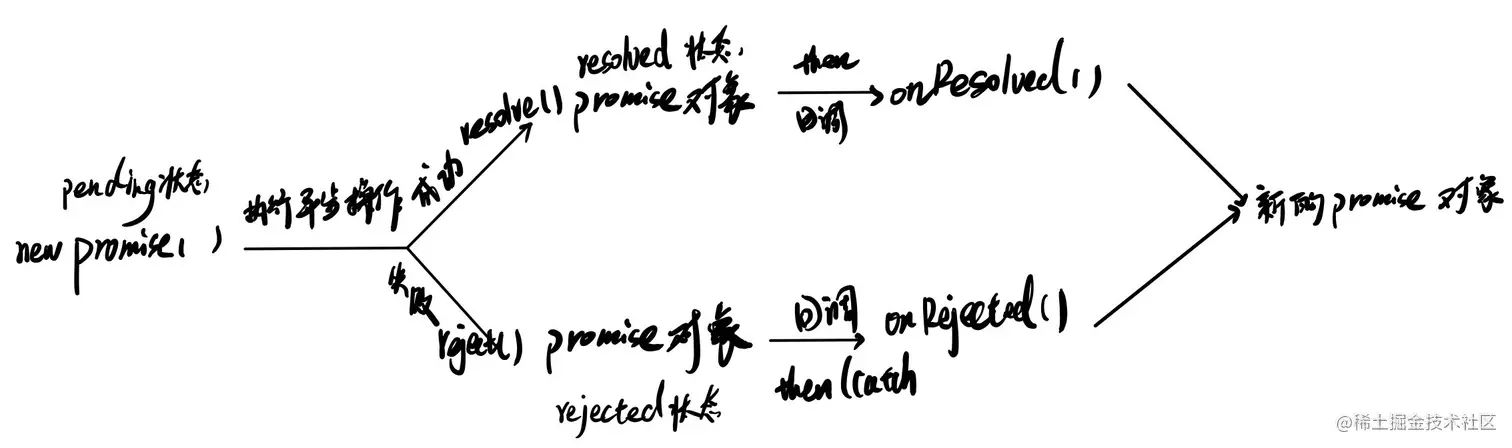 pending状态
new promise( )
执行异步操作
成功
resolve()
resolved 状态
promise对象
then
回调
onResolved()
失败
reject()
promise对象
rejected状态
回调
then(catch
onRejected()
新的promise对象
@稀土掘金技术社区